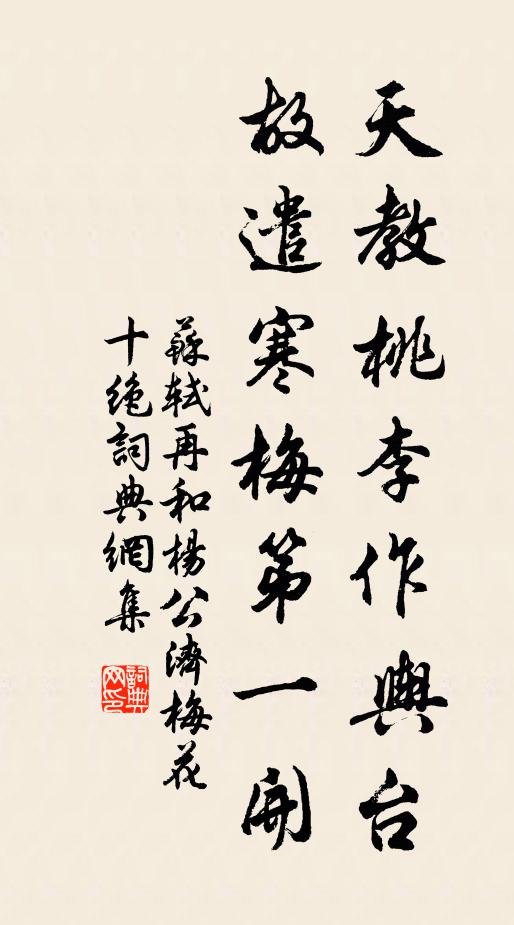 天教桃李作輿台
故遣寒梅第一開
蘇軾再和楊公濟梅花
十絕詞典網集
詞典
网印